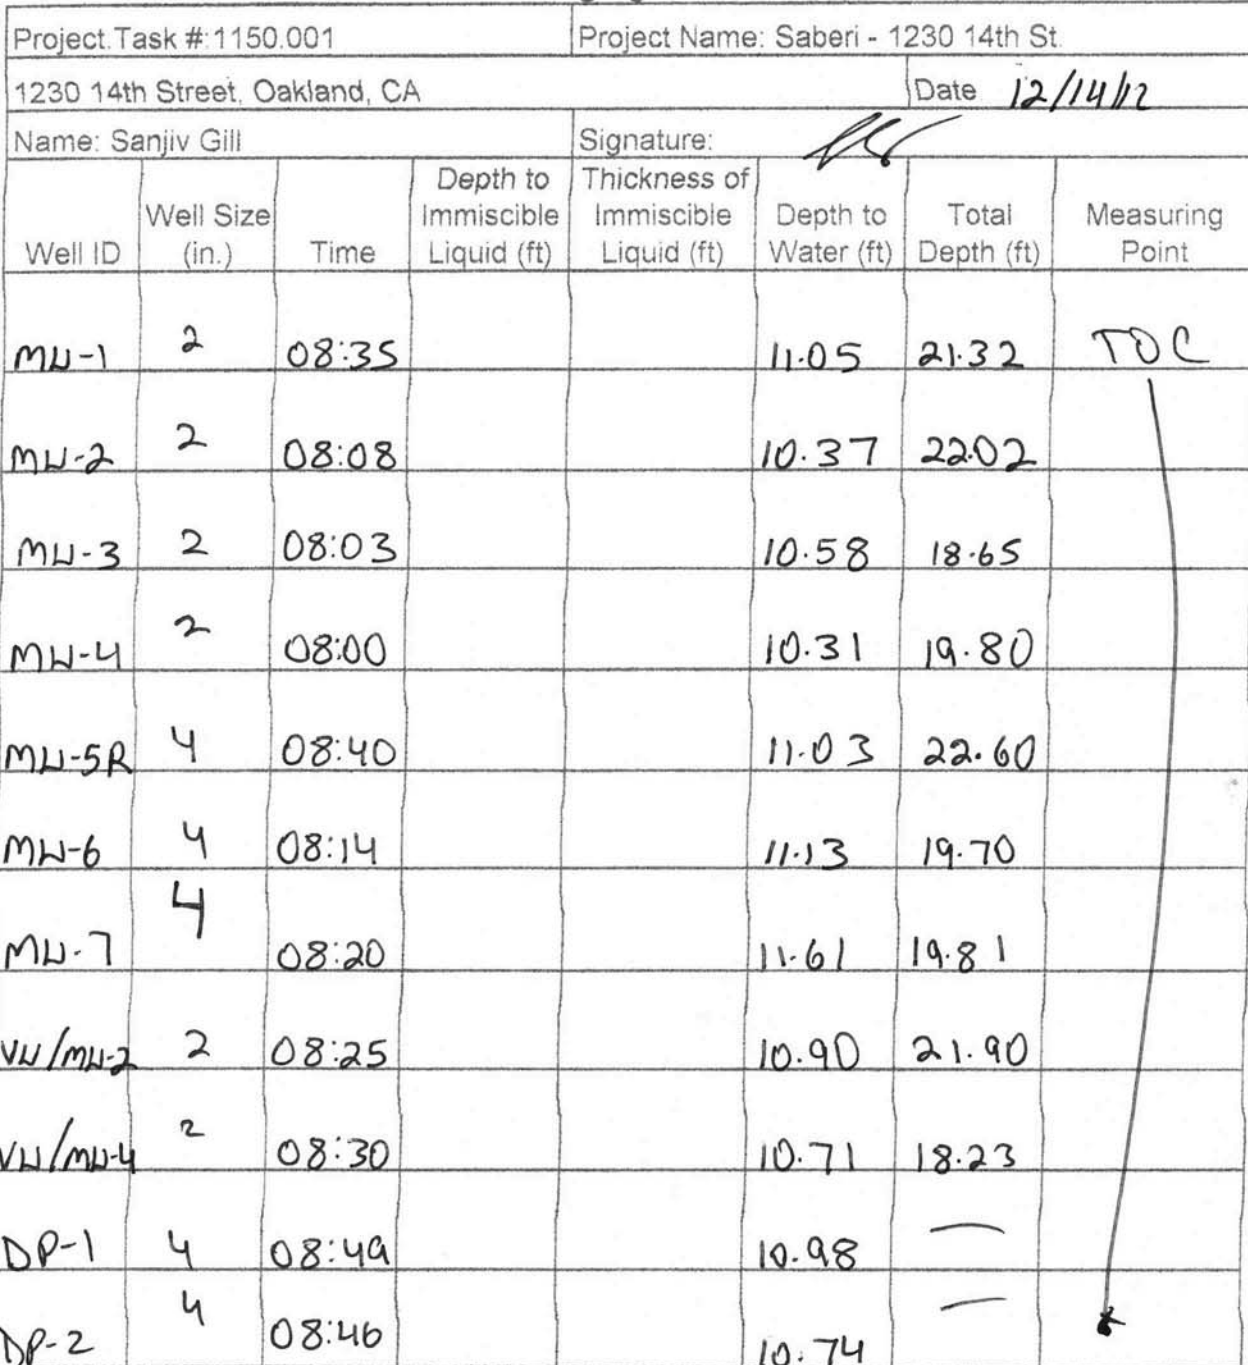 Project.Task #:1150.001 Project Name: Saberi - 1230 14th St.
1230 14th Street, Oakland, CA Date 12/14/12
Name: Sanjiv Gill Signature:
Well ID Well Size (in.) Time Depth to Immiscible Liquid (ft) Thickness of Immiscible Liquid (ft) Depth to Water (ft) Total Depth (ft) Measuring Point
MW-1 2 08:35 11.05 21.32 TOC
MW-2 2 08:08 10.37 22.02
MW-3 2 08:03 10.58 18.65
MW-4 2 08:00 10.31 19.80
MW-5R 4 08:40 11.03 22.60
MW-6 4 08:14 11.13 19.70
MW-7 4 08:20 11.61 19.81
VW/MW-2 2 08:25 10.90 21.90
VW/MW-4 2 08:30 10.71 18.23
DP-1 4 08:49 10.98 —
DP-2 4 08:46 10.74 —